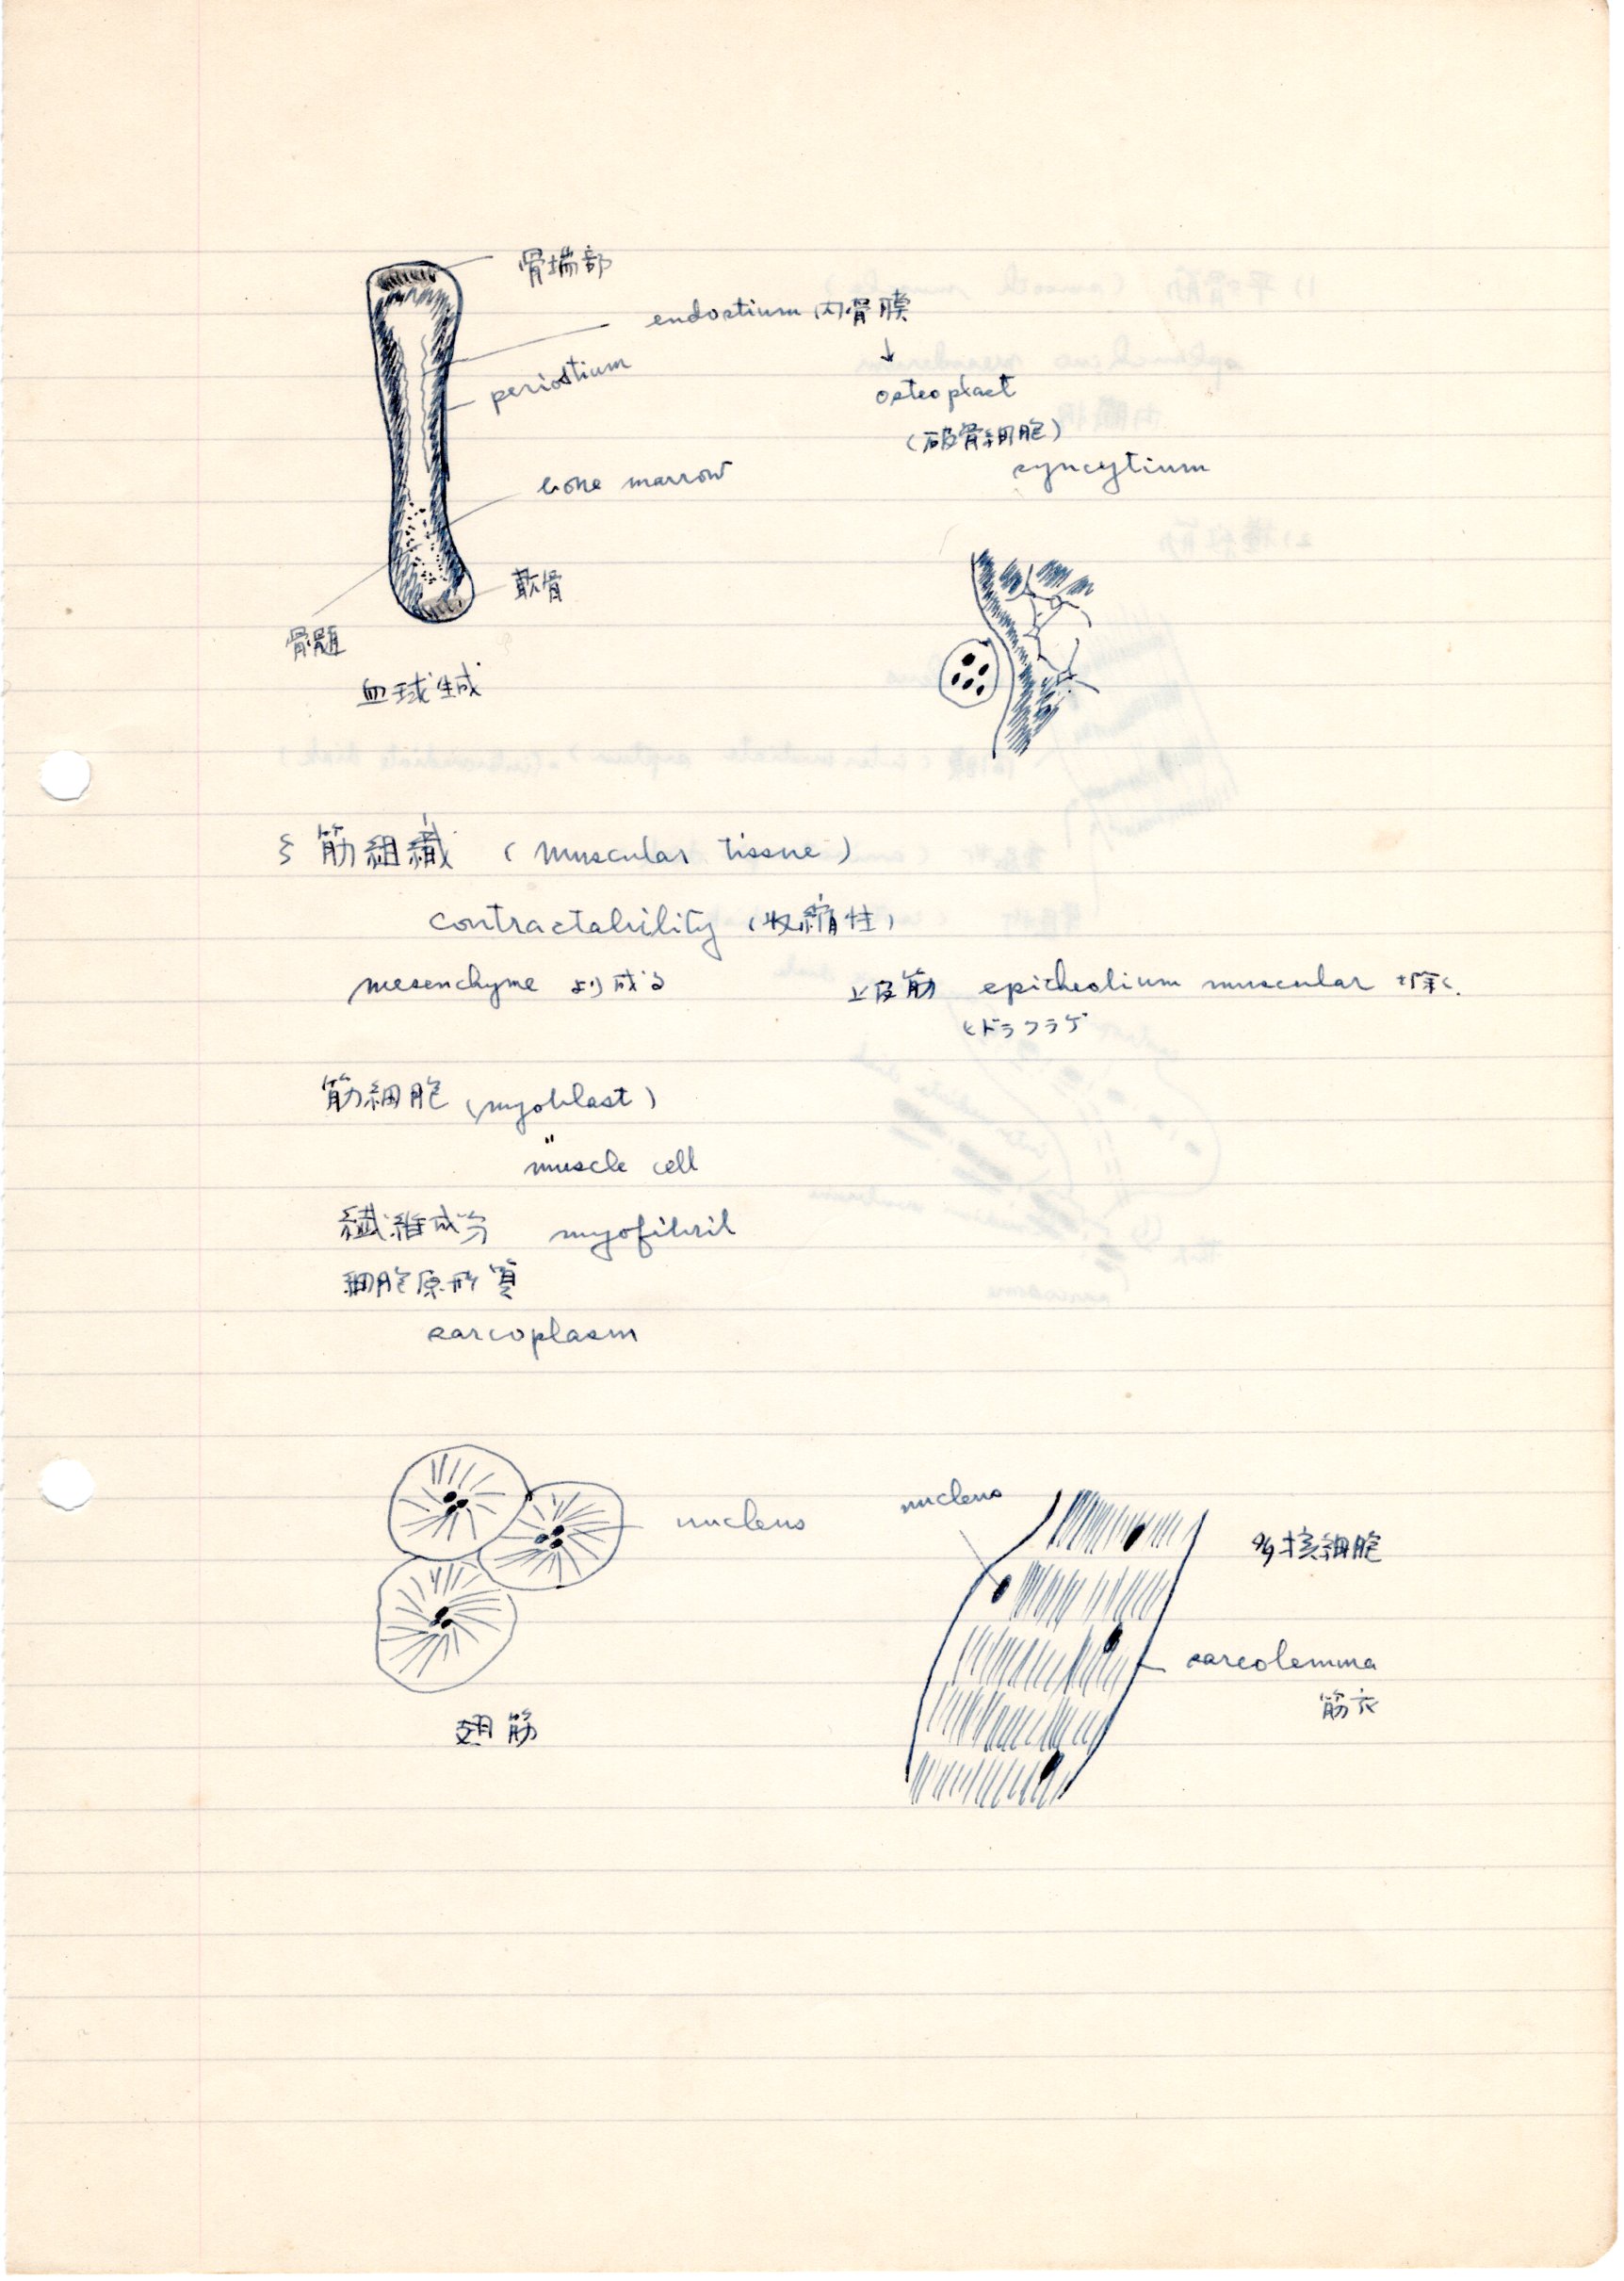 骨端部
endostium 内骨膜
↓
periostium
osteoplact
(破骨細胞)
syncytium
bone marrow
軟骨
骨髄
血球生成
§ 筋組織 (muscular tissue)
contractability (収縮性)
mesenchyme より成る
上皮筋 epitheolium muscular を除く.
ヒドラクラゲ
筋細胞 (myoblast)
〃
muscle cell
繊維成分 myofibril
細胞原形質
sarcoplasm
nucleus
nucleus
多核細胞
sarcolemma
筋衣
翅筋